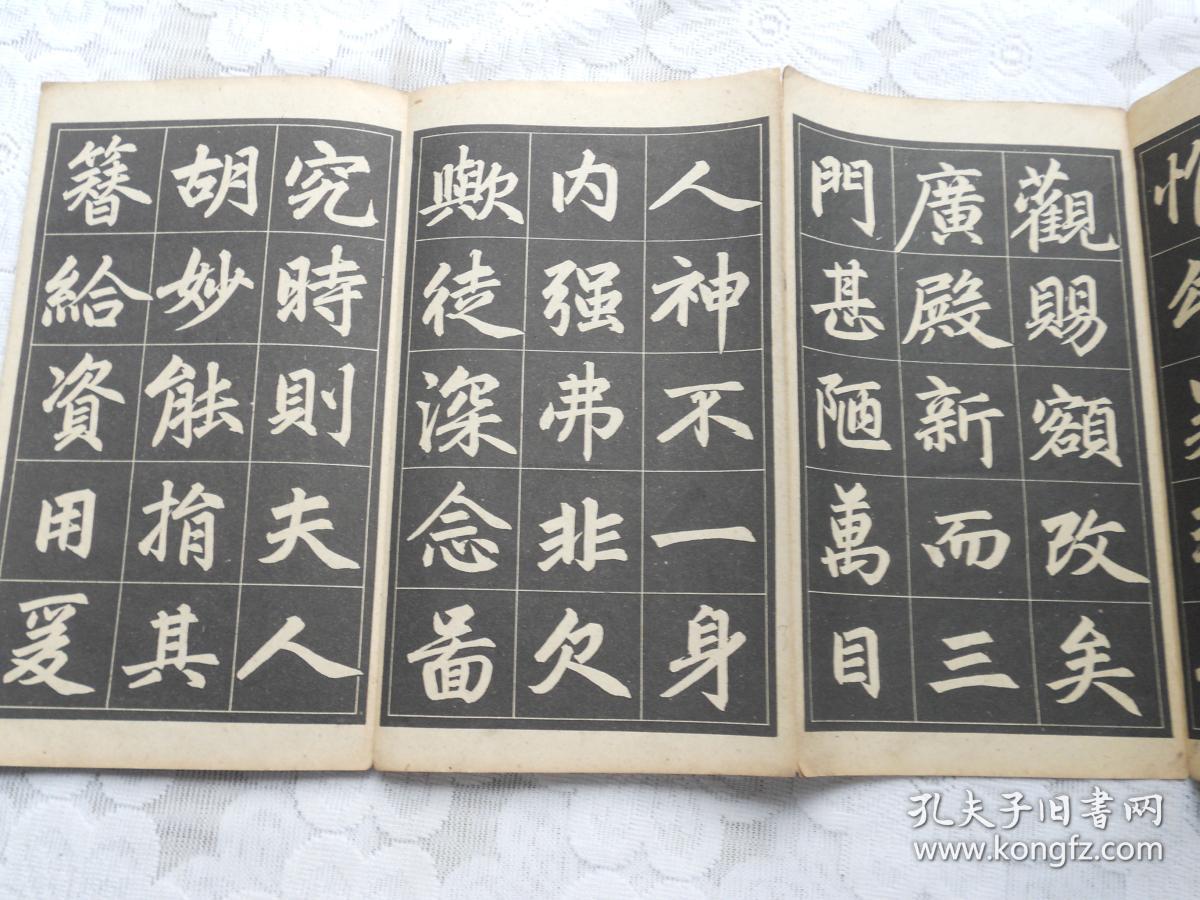 觀賜額改矣
廣殿新而三
門甚陋萬目
人神不一身
内强弗非欠
歟徒深念啚
究時則夫人
胡妙能捐其
簪給資用爰
孔夫子旧书网
www.kongfz.com